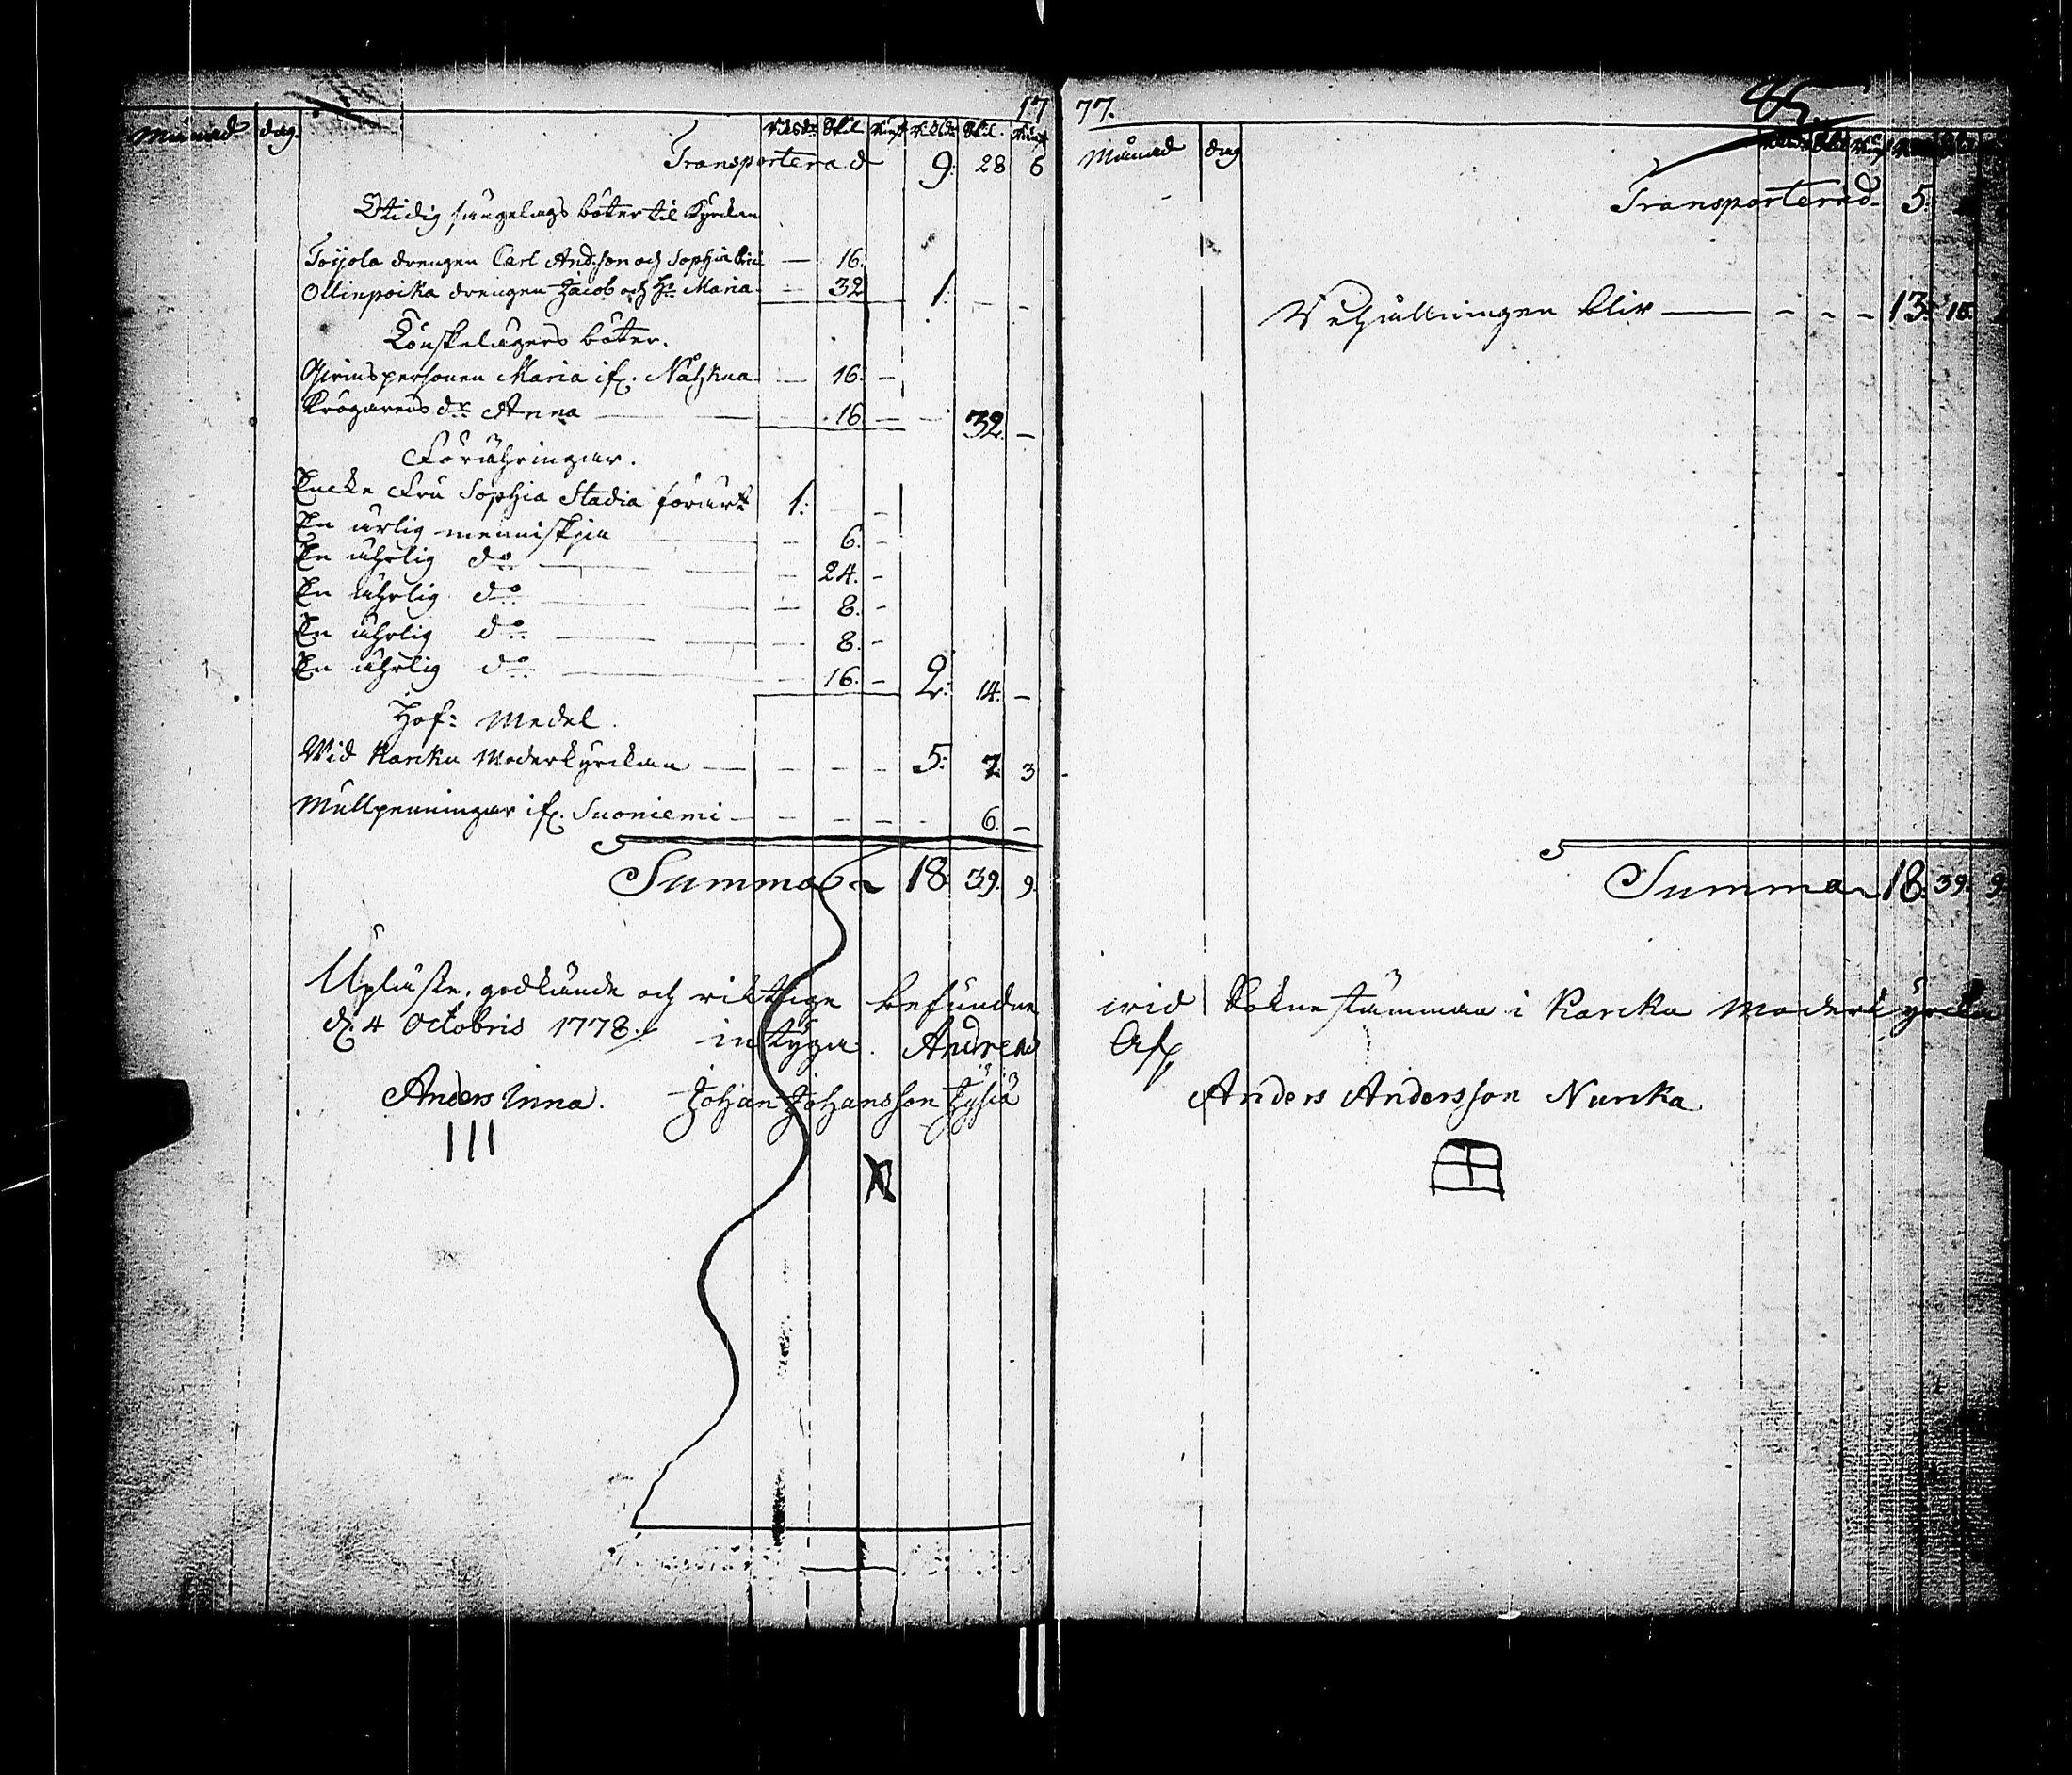 17
Månad dag. Riksdr Skil. Runst. Riksdr Skil. Runst.
Transporterad 9: 28 6
Otidig sängelags böter til Kyrckan
Toijola drengen Carl And:son och Sophia — 16.
Ollinpoika drengen Jacob och H: Maria — 32 1. — —
Lönskelägers böter.
Qvinspersonen Maria ifr. — 16. —
Krögarens dr Anna — 16 — — 32. —
Förähringar.
Encke Fru Sophia Stadia förärt 1: — —
En ärlig menniskja — 6. —
En ährlig do — 24. —
En ährlig do — 8. —
En ährlig do — 8. —
En ährlig do — 16. — 2: 14. —
Håf: Medel.
Wid Karcku Moderkyrckan — — — — 5: 7. 3
Mullpenningar ifr. Suoniemi — — — — — 6. —
Summa 18. 39. 9.
Upläste, godkände och riktige befundne
d. 4 Octobris 1778. intyga. Andreas
Anders Inna. Johan Johansson
77. 85.
Månad dag
Transporterad 5:
Behållningen blir — — — — 13: 15.
Summa 18. 39. 9
wid Sokne stämman i Karcku Moderkyrcka
Anders Andersson Nurcka